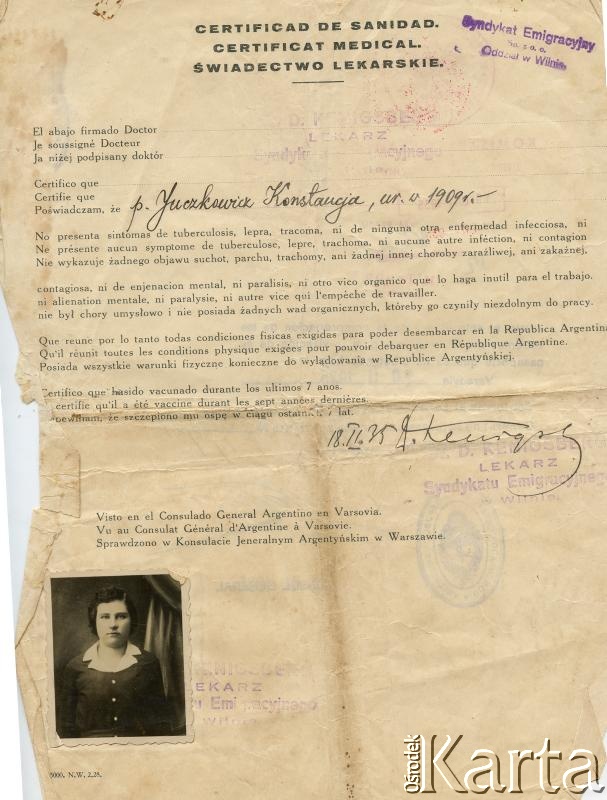 CERTIFICAD DE SANIDAD.
CERTIFICAT MEDICAL.
ŚWIADECTWO LEKARSKIE.
Syndykat Emigracyjny
Sp. z o. o.
Oddział w Wilnie.
El abajo firmado Doctor
Je soussigné Docteur
Ja niżej podpisany doktór
D. KENIGSBERG
LEKARZ
Syndykatu Emigracyjnego
Certifico que
Certifie que
Poświadczam, że p. Juczkowicz Konstancja, ur. w 1909 r.-
No presenta sintomas de tuberculosis, lepra, tracoma, ni de ninguna otra enfermedad infecciosa, ni
Ne présente aucun symptome de tuberculose, lepre, trachoma, ni aucune autre inféction, ni contagion
Nie wykazuje żadnego objawu suchot, parchu, trachomy, ani żadnej innej choroby zaraźliwej, ani zakaźnej,
contagiosa, ni de enjenacion mental, ni paralisis, ni otro vico organico que lo haga inutil para el trabajo.
ni alienation mentale, ni paralysie, ni autre vice qui l'empêche de travailler.
nie był chory umysłowo i nie posiada żadnych wad organicznych, któreby go czyniły niezdolnym do pracy.
Que reune por lo tanto todas condiciones fisicas exigidas para poder desembarcar en la Republica Argentina
Qu'il réunit toutes les conditions physique exigées pour pouvoir debarquer en République Argentine.
Posiada wszystkie warunki fizyczne konieczne do wylądowania w Republice Argentyńskiej.
Certifico que hasido vacunado durante los ultimos 7 anos.
certifie qu'il a été vaccine durant les sept années dernières.
że szczepiono mu ospę w ciągu ostatnich 7 lat.
18.II.35 D. Kenigsberg
D. KENIGSBERG
LEKARZ
Syndykatu Emigracyjnego
w Wilnie.
Visto en el Consulado General Argentino en Varsovia.
Vu au Consulat Général d'Argentine à Varsovie.
Sprawdzono w Konsulacie Jeneralnym Argentyńskim w Warszawie.
KENIGSBERG
LEKARZ
Syndykatu Emigracyjnego
w Wilnie.
5000. N.W. 2.28.
Ośrodek
Karta